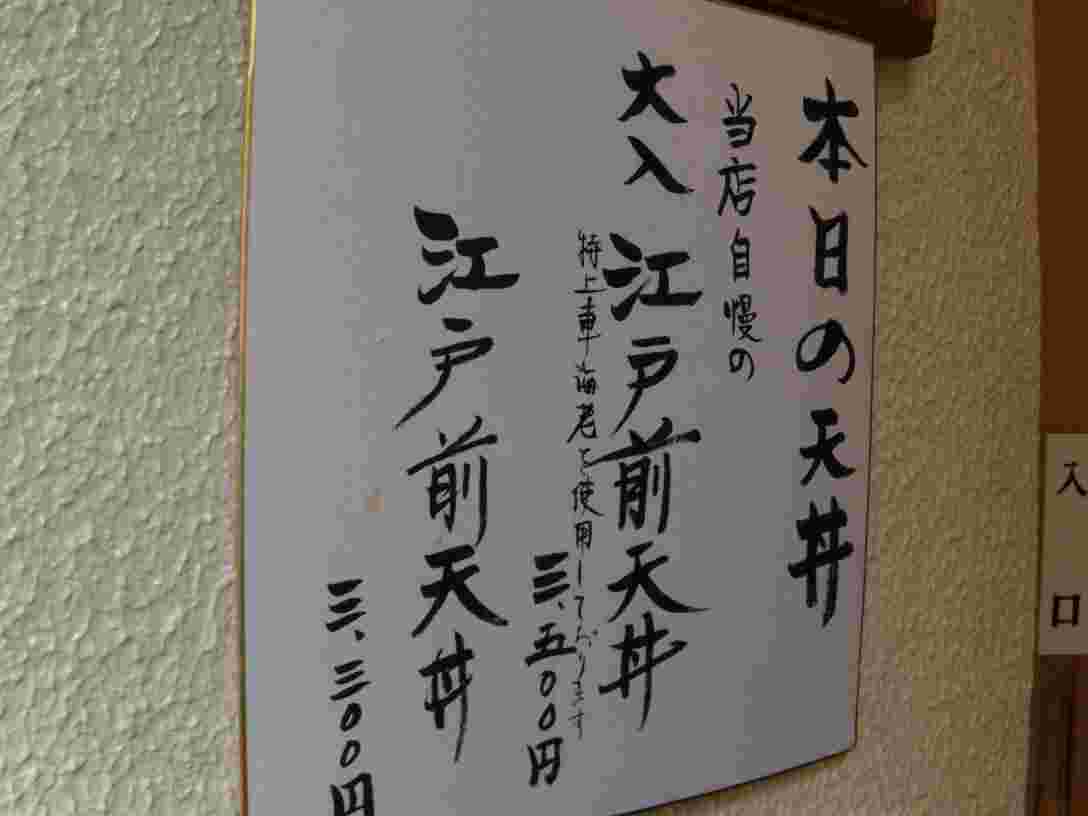 本日の天丼
当店自慢の
大入江戸前天丼
特上車海老を使用しております
三、五〇〇円
江戸前天丼
三、三〇〇円
入口